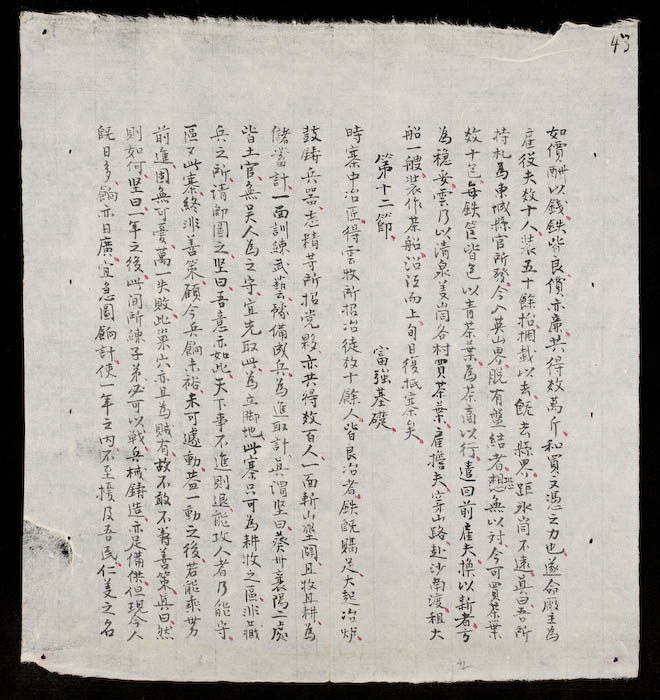 43
如價酬以錢鉄皆良價亦廉共得数萬斤和買文憑之力也遂命廠主為
雇役夫数十人裝五十餘抬捆載以去飭去縣界距永尚不遠真曰吾所
持札為東城縣官所發今入英山界脫有盤結者恐無以对今可買茶葉
数十包每鉄筐皆色以青茶葉為茶商以行遣回前雇夫換以新者方
為穏妥雲乃以清泉姜尚各村買茶葉雇擔夫穿山路赴沙南渡租大
船一艘裝作茶船沿江而上旬日復抵寨矣
第十二節 富強基礎
時寨中冶匠得雲牧所招冶徒数十餘人皆良冶者鉄既購足大起冶炉
鼓鋳兵器志精芋所招党夥亦共得数百人一面斬山墾闢且牧且耕為
儲蓄計一面訓練武藝修備戍兵為進取計真謂堅曰葵卅襄陽二處
皆土官無吴人為之守宜先取此為立脚地此寨只可為耕牧之區非藏
兵之所請師圖之堅曰吾意亦如此天下事不進則退能攻人者乃能守
區又此寨終非善策顧今兵餉未裕未可遽動若一動之後若能乘势
前進固無可憂萬一失敗此巢穴亦且為賊有故不敢不籌善策真曰然
則如何堅曰一年之後此間所練子弟必可以戰兵械鋳造亦足備供但現今人
既日多餉亦日廣宜急圖餉計使一年之内不至擾及吾民仁义之名
42